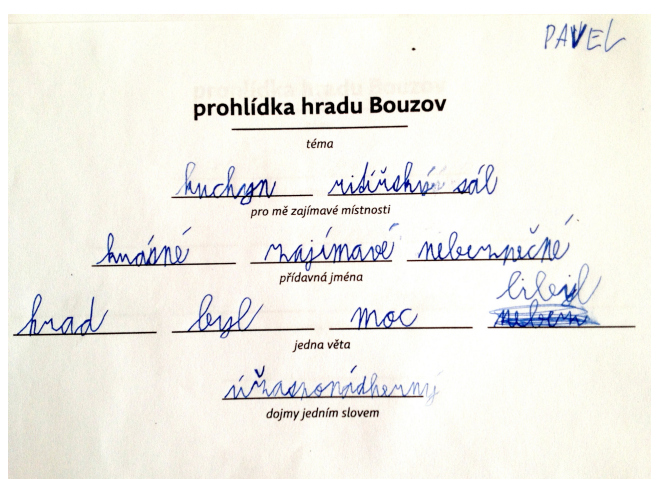 PAVEL
prohlídka hradu Bouzov
téma
kuchyn ritířský sál
pro mě zajímavé místnosti
krásné zajímavé nebezpečné
přídavná jména
libyl
hrad byl moc
jedna věta
úžasnonádherný
dojmy jedním slovem